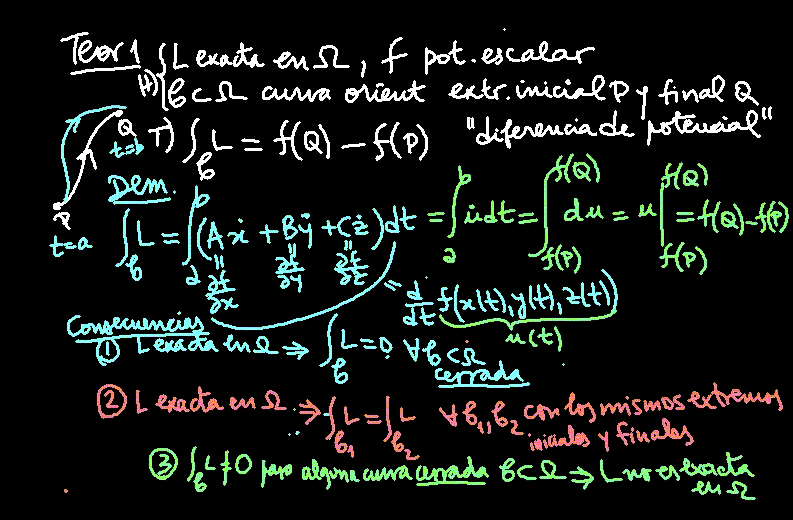 Teor 1 (H) { L exacta en Ω, f pot. escalar
C ⊂ Ω curva orient extr. inicial P y final Q
T) ∫_C L = f(Q) − f(P) "diferencia de potencial"
Q t=b
P t=a
Dem.
∫_C L = ∫_a^b (Aẋ + Bẏ + Cż) dt = ∫_a^b u̇ dt = ∫_{f(P)}^{f(Q)} du = u |_{f(P)}^{f(Q)} = f(Q) − f(P)
= ∂f/∂x = ∂f/∂y = ∂f/∂z = d/dt f(x(t), y(t), z(t))
u(t)
Consecuencias
① L exacta en Ω ⇒ ∫_C L = 0, ∀ C ⊂ Ω cerrada
② L exacta en Ω. ⇒ ∫_{C1} L = ∫_{C2} L ∀ C1, C2 con los mismos extremos
iniciales y finales
③ ∫_C L ≠ 0 para alguna curva cerrada C ⊂ Ω ⇒ L no es exacta
en Ω